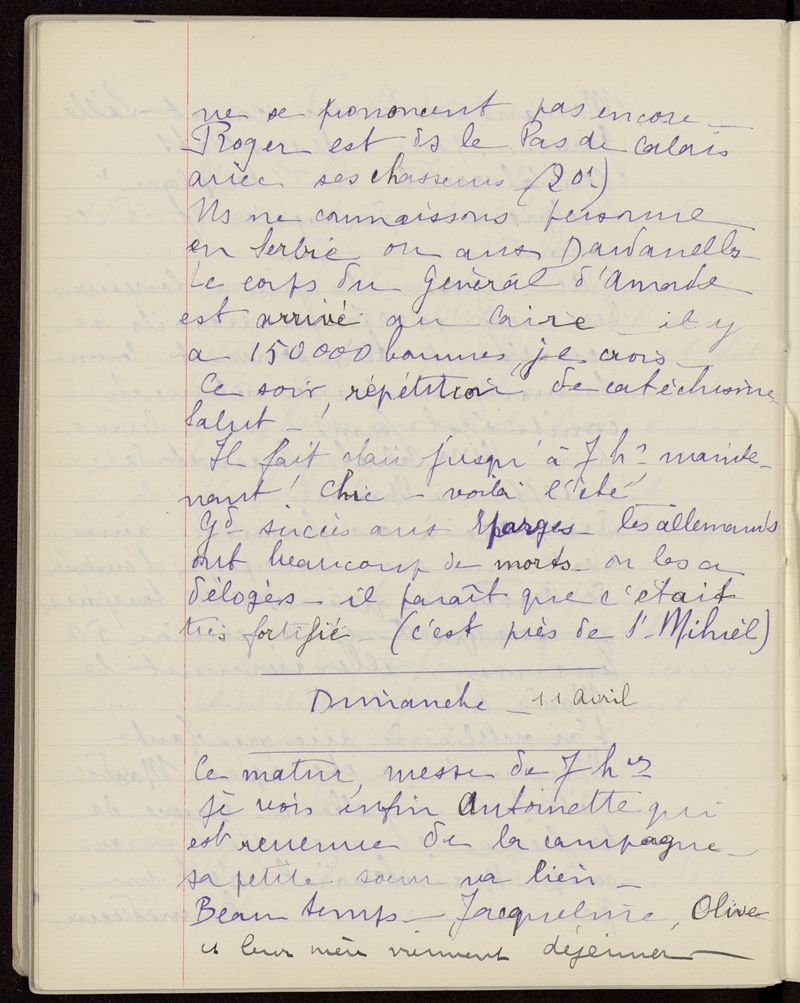 ne se prononcent pas encore –
Roger est ds le Pas de Calais
avec ses chasseurs (20e)
Ns ne connaissons personne
en Serbie ou aux Dardanelles
Le corps du Général d'Amade
est arrivé au Caire il y
a 150 000 hommes, je crois –
Ce soir, répétition de catéchisme
Salut –
Il fait clair jusqu'à 7 hrs mainte-
nant ! Chic – voilà l'été
Gd succès aux Eparges – les allemands
ont beaucoup de morts – on les a
délogés – il paraît que c'était
très fortifié (c'est près de St-Mihiel)
Dimanche – 11 avril
Ce matin, messe de 7 hres
je vois enfin Antoinette qui
est revenue de la campagne –
sa petite soeur va bien –
Beau temps – Jacqueline, Olive
et leur mère viennent déjeuner –